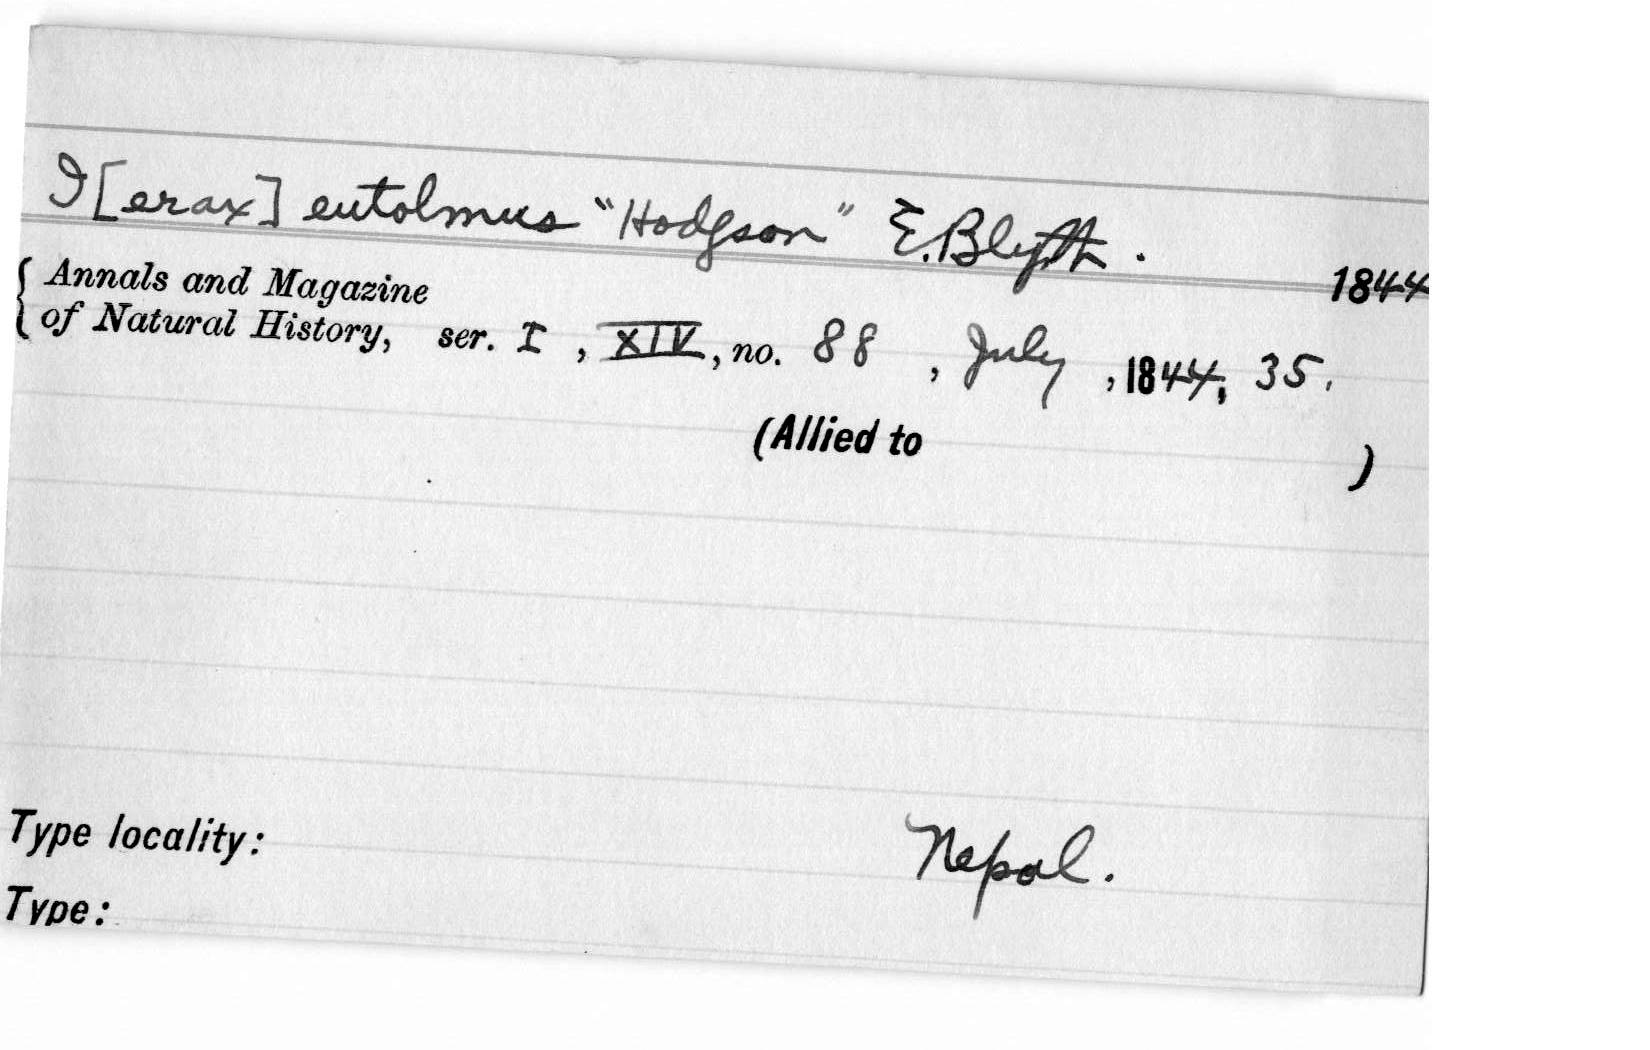 I[erax] eutolmus "Hodgson" E.Blyth. 1844
{ Annals and Magazine
of Natural History, ser. I, XIV, no. 88, July, 1844, 35.
(Allied to )
Type locality: Nepal.
Type: